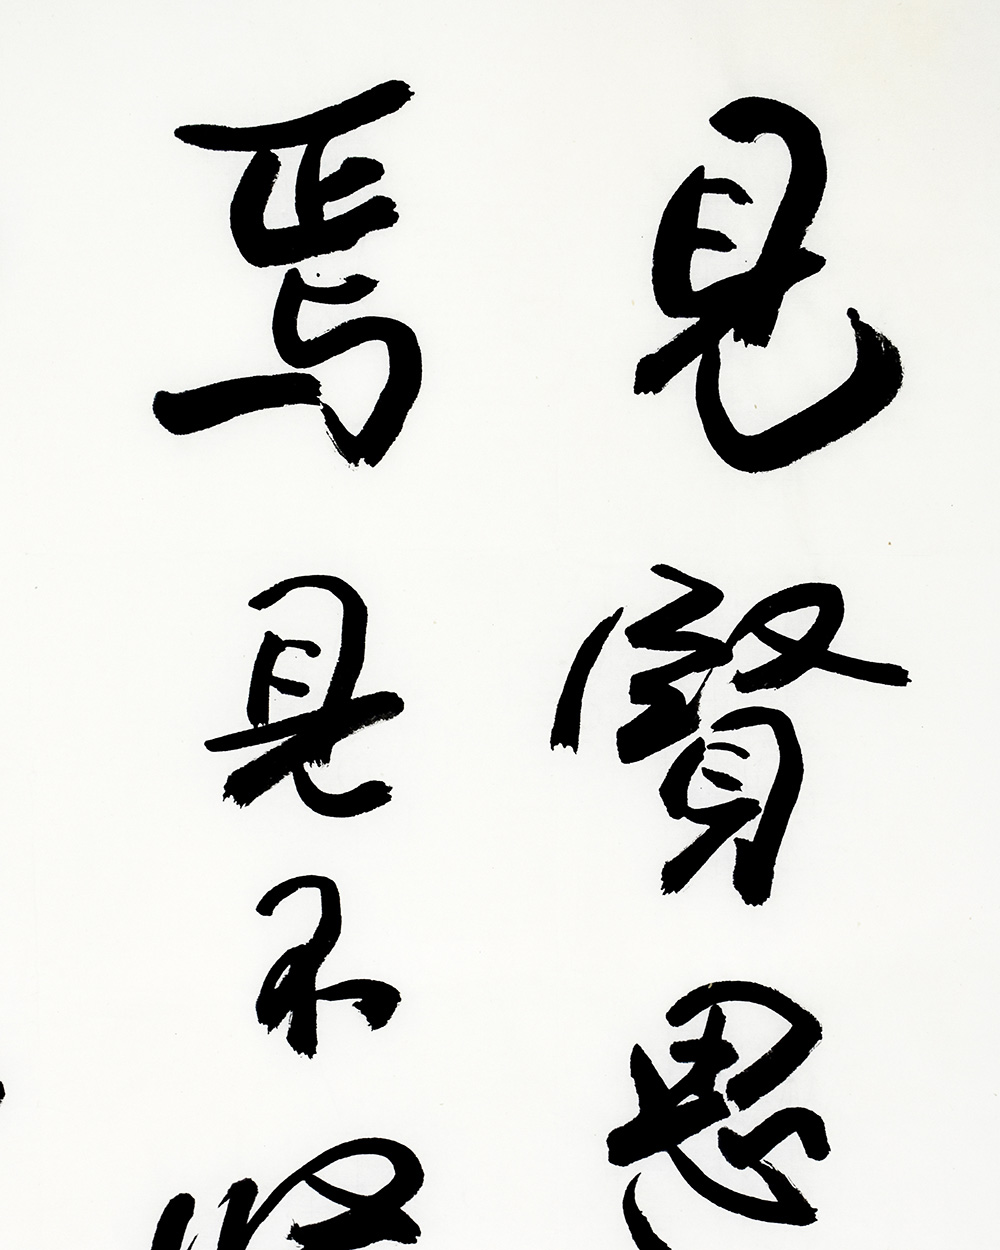 見賢思
焉見不